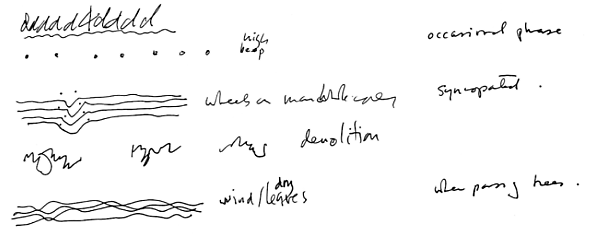 high
beep
occasional phase
wheels on
syncopated.
demolition
wind/dry leaves
when passing trees.